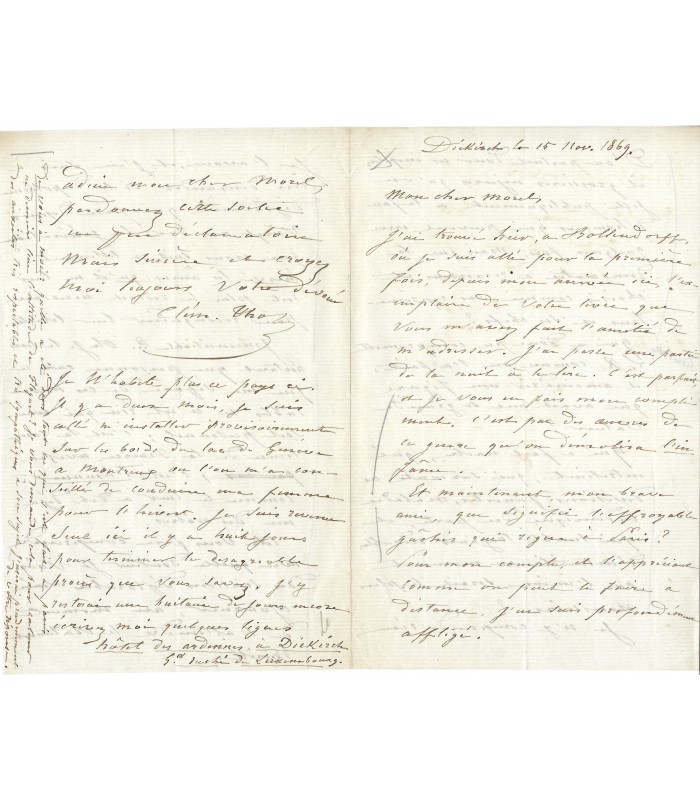 Diekirch le 15 Nov. 1869.
Mon cher Morel,
J'ai trouvé hier, a Bollendorff,
où je suis allé pour la première
fois, depuis mon arrivée ici, l'ex-
emplaire de votre livre que
vous m'avez fait l'amitié de
m'adresser. J'ai passé une partie
de la nuit a le lire. C'est parfait
et je vous en fais mon compli-
ment. C'est par des œuvres de
ce genre qu'on démolira l'in-
fâme.
Et maintenant, mon brave
ami, que signifie l'effroyable
gachis qui règne à Paris?
Pour mon compte, et l'appréciant
comme on peut le faire à
distance, j'en suis profondément
affligé.
adieu mon cher Morel,
pardonnez cette sortie
un peu déclamatoire
mais sincère et croyez
moi toujours votre dévoué
Clém. Tho
Je n'habite plus ce pays ci.
Il y a deux mois, je suis
allé m'installer provisoirement
sur les bords du lac de Genève
a Montreux où l'on m'a con-
seillé de conduire ma femme
pour l'hiver. Je suis revenu
seul ici il y a huit jours
pour terminer le désagréable
procès que vous savez. J'y
resterai une huitaine de jours encore
écrivez moi quelques lignes
hôtel des ardennes à Diekirch
Gd duché de Luxembourg.